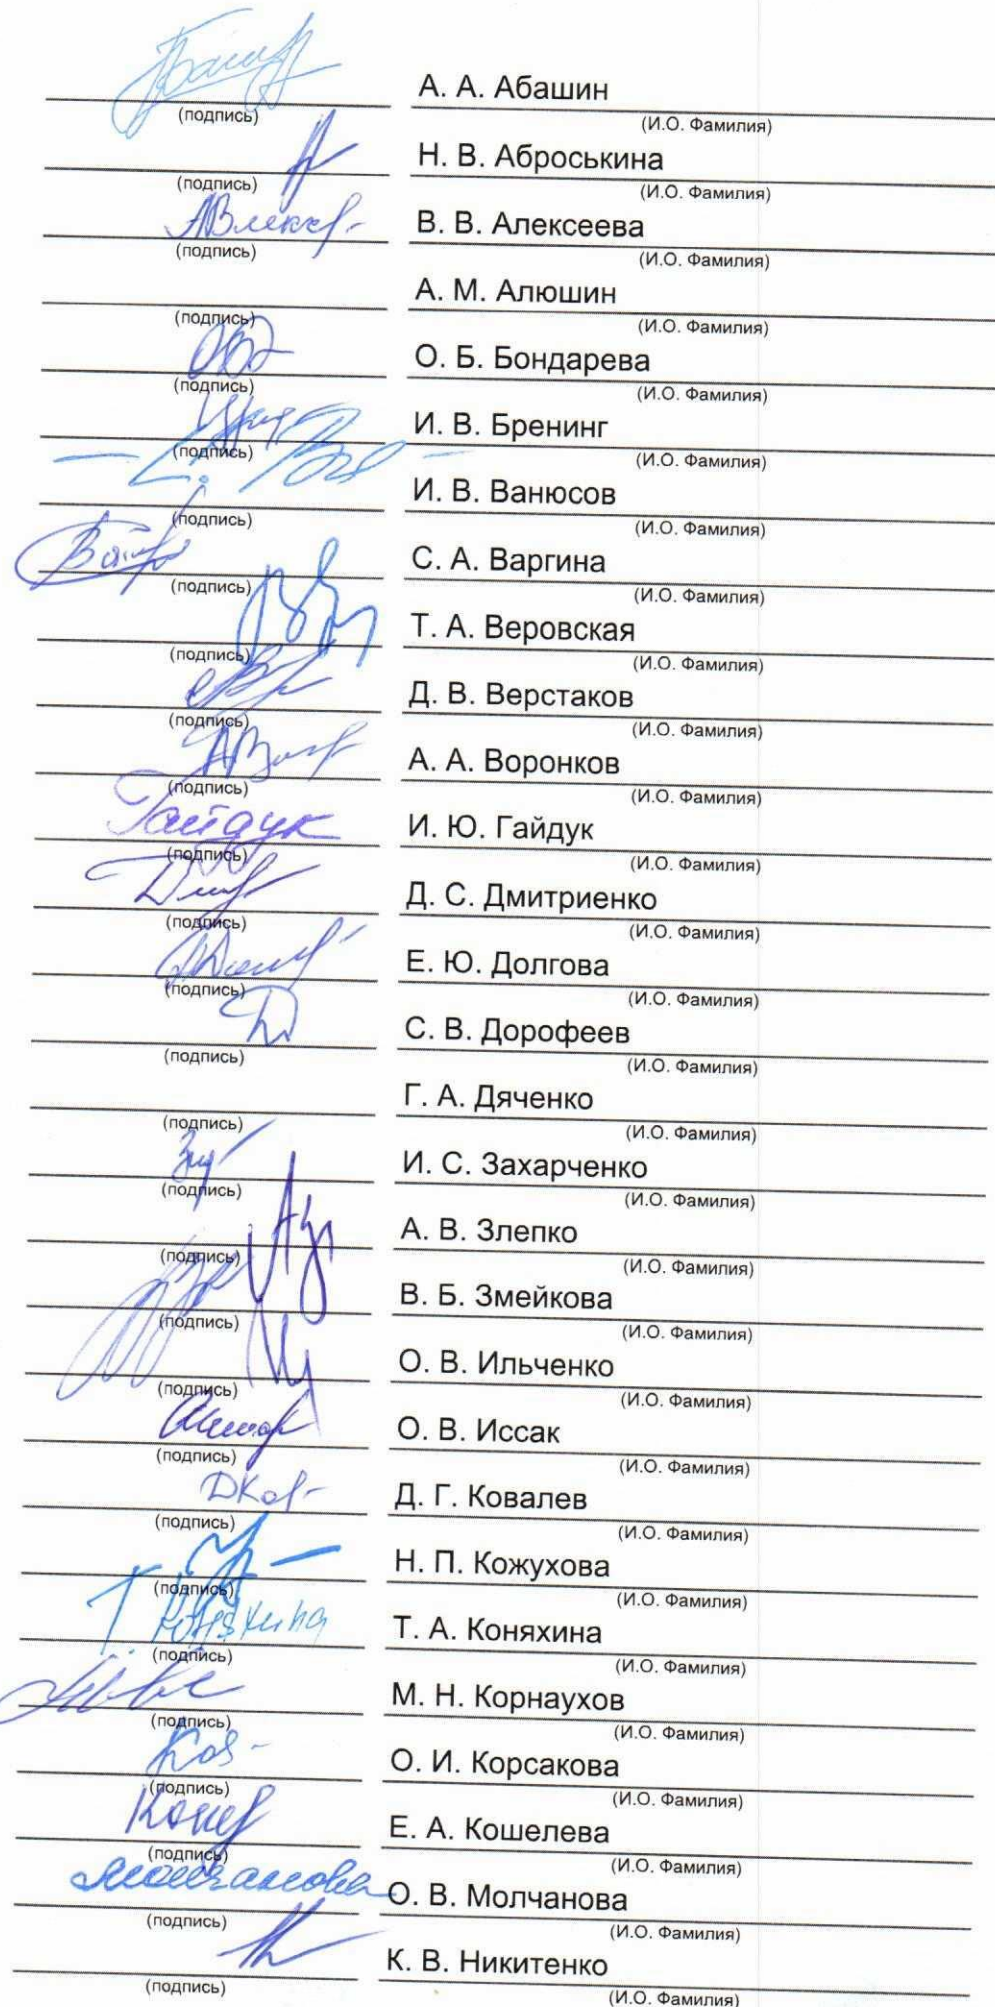 А. А. Абашин
(подпись) (И.О. Фамилия)
Н. В. Аброськина
(подпись) (И.О. Фамилия)
В. В. Алексеева
(подпись) (И.О. Фамилия)
А. М. Алюшин
(подпись) (И.О. Фамилия)
О. Б. Бондарева
(подпись) (И.О. Фамилия)
И. В. Бренинг
(подпись) (И.О. Фамилия)
И. В. Ванюсов
(подпись) (И.О. Фамилия)
С. А. Варгина
(подпись) (И.О. Фамилия)
Т. А. Веровская
(подпись) (И.О. Фамилия)
Д. В. Верстаков
(подпись) (И.О. Фамилия)
А. А. Воронков
(подпись) (И.О. Фамилия)
Гайдук И. Ю. Гайдук
(подпись) (И.О. Фамилия)
Д. С. Дмитриенко
(подпись) (И.О. Фамилия)
Е. Ю. Долгова
(подпись) (И.О. Фамилия)
С. В. Дорофеев
(подпись) (И.О. Фамилия)
Г. А. Дяченко
(подпись) (И.О. Фамилия)
И. С. Захарченко
(подпись) (И.О. Фамилия)
А. В. Злепко
(подпись) (И.О. Фамилия)
В. Б. Змейкова
(подпись) (И.О. Фамилия)
О. В. Ильченко
(подпись) (И.О. Фамилия)
О. В. Иссак
(подпись) (И.О. Фамилия)
Д. Г. Ковалев
(подпись) (И.О. Фамилия)
Н. П. Кожухова
(подпись) (И.О. Фамилия)
Коняхина Т. А. Коняхина
(подпись) (И.О. Фамилия)
М. Н. Корнаухов
(подпись) (И.О. Фамилия)
О. И. Корсакова
(подпись) (И.О. Фамилия)
Е. А. Кошелева
(подпись) (И.О. Фамилия)
Молчанова О. В. Молчанова
(подпись) (И.О. Фамилия)
К. В. Никитенко
(подпись) (И.О. Фамилия)